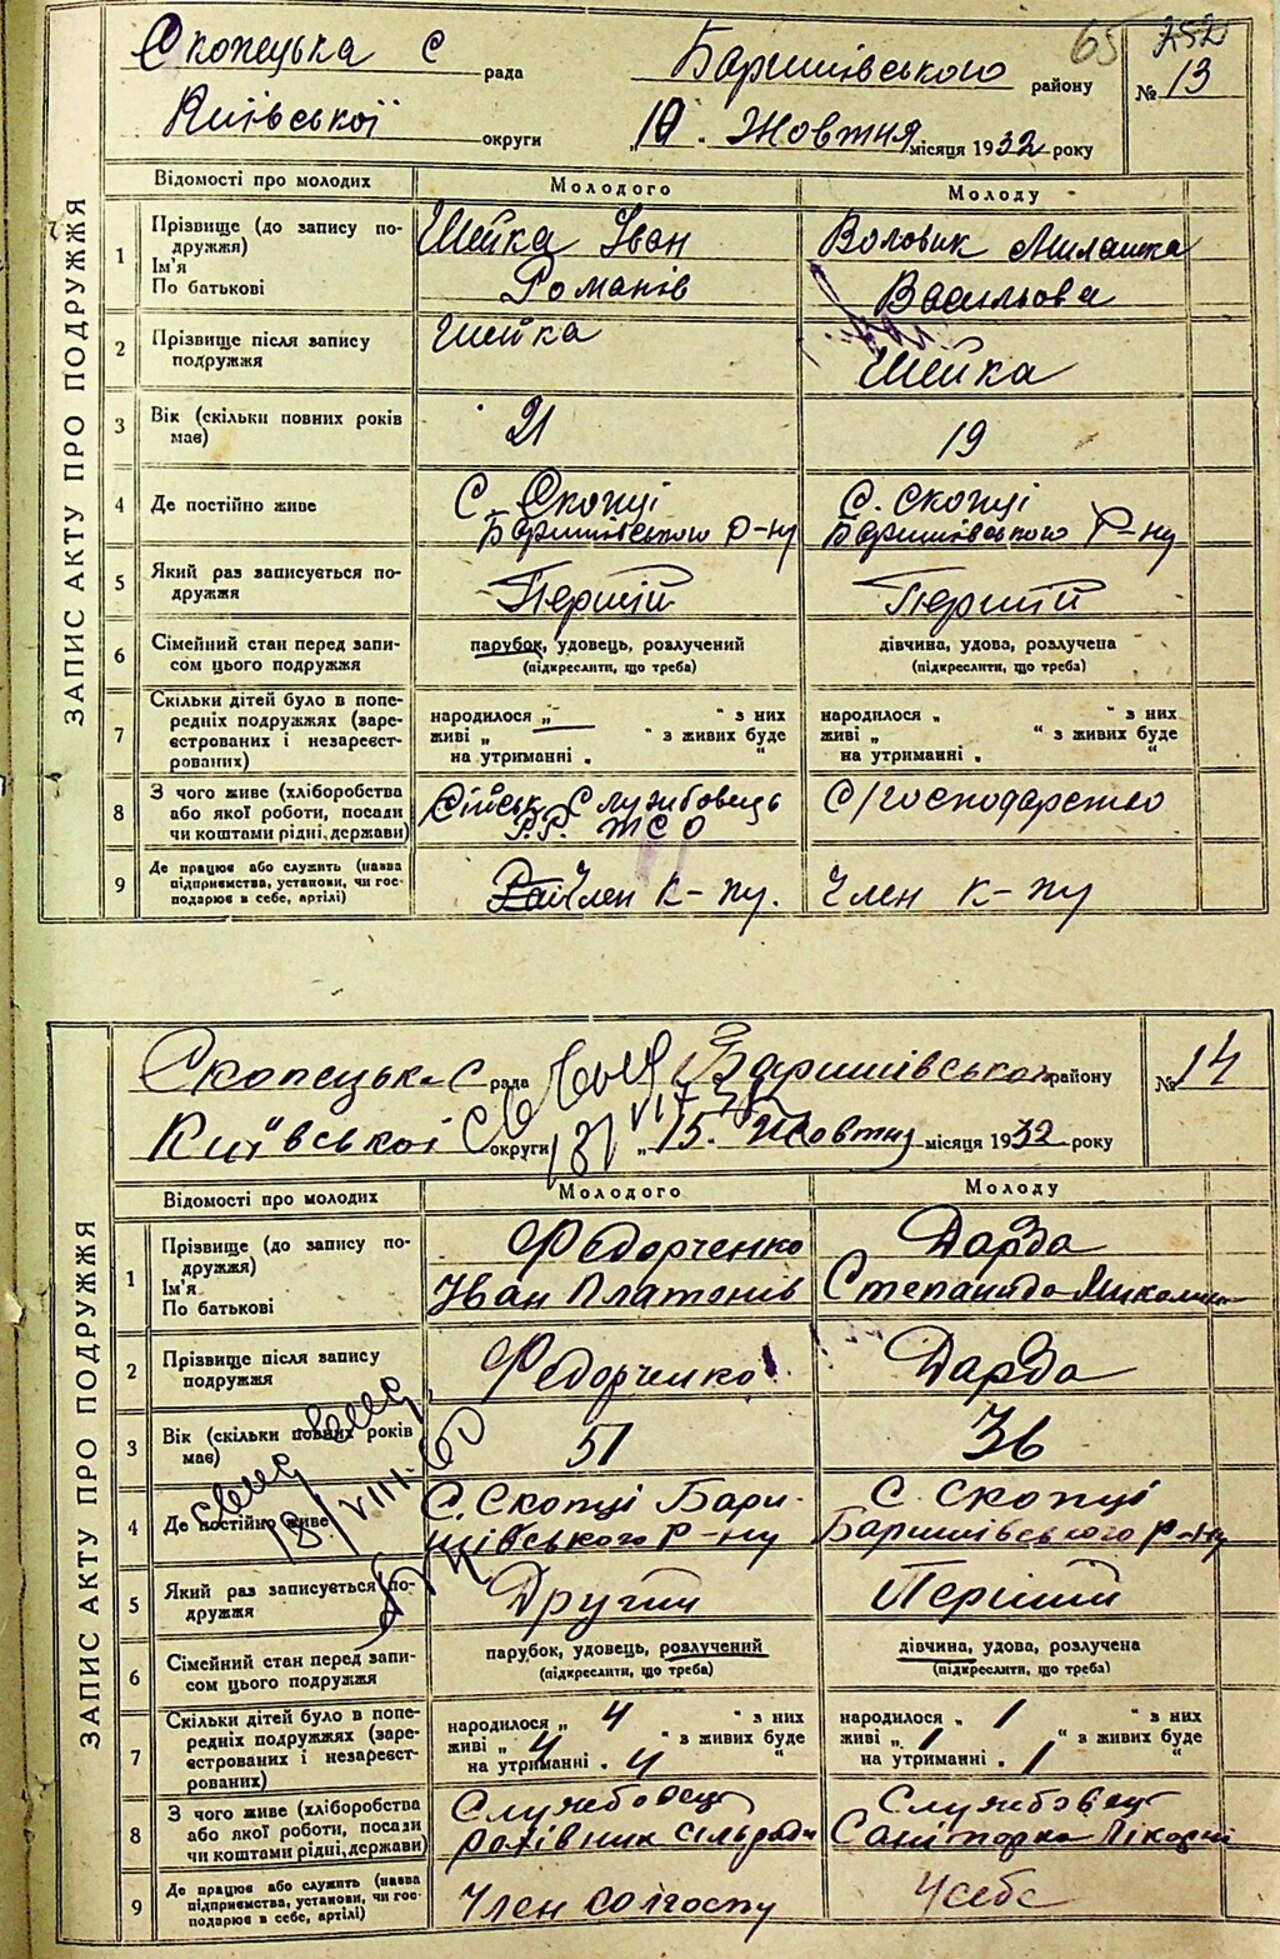 65 252
Скопецька с рада Баришівського району № 13
Київської округи „10. Жовтня місяця 1932 року
ЗАПИС АКТУ ПРО ПОДРУЖЖЯ
Відомості про молодих Молодого Молоду
1 Прізвище (до запису по- Шейка Іван Воловик Милашка
дружжя)
Ім'я
По батькові Романів Васильова
2 Прізвище після запису Шейка
подружжя Шейка
3 Вік (скільки повних років 21 19
має)
4 Де постійно живе С. Скопці С. Скопці
Баришівського Р-ну Баришівського Р-ну
5 Який раз записується по- Перший Перший
дружжя
6 Сімейний стан перед запи- парубок, удовець, розлучений дівчина, удова, розлучена
сом цього подружжя (підкреслити, що треба) (підкреслити, що треба)
7 Скільки дітей було в попе-
редніх подружжях (заре- народилося „ — “ з них народилося „ “ з них
єстрованих і незареєст- живі „ “ з живих буде живі „ “ з живих буде
рованих) на утриманні „ “ на утриманні „ “
8 З чого живе (хліборобства Сільськ Службовець С/господарство
або якої роботи, посади
чи коштами рідні, держави) Р.Р. ЖСО
9 Де працює або служить (назва
підприємства, установи, чи гос- Рай Член к-пу. Член к-пу
подарює в себе, артілі)
Скопецька С рада Баришівського району № 14
Київської округи „15. Жовтня місяця 1932 року
ЗАПИС АКТУ ПРО ПОДРУЖЖЯ
Відомості про молодих Молодого Молоду
1 Прізвище (до запису по- Федорченко Дарда
дружжя)
Ім'я Іван Платонів Степанида
По батькові
2 Прізвище після запису Федорченко Дарда
подружжя
3 Вік (скільки повних років 51 36
має)
4 Де постійно живе С. Скопці Бари- С. Скопці
шівського Р-ну Баришівського Р-ну
18/VIII-60
5 Який раз записується по- Другий Перший
дружжя
6 Сімейний стан перед запи- парубок, удовець, розлучений дівчина, удова, розлучена
сом цього подружжя (підкреслити, що треба) (підкреслити, що треба)
7 Скільки дітей було в попе-
редніх подружжях (заре- народилося „ 4 “ з них народилося „ 1 “ з них
єстрованих і незареєст- живі „ 4 “ з живих буде живі „ 1 “ з живих буде
рованих) на утриманні „ 4 “ на утриманні „ 1 “
8 З чого живе (хліборобства Службовець Службовець
або якої роботи, посади
чи коштами рідні, держави) рахівник сільради Санітарка
9 Де працює або служить (назва
підприємства, установи, чи гос- Член колгоспу У себе
подарює в себе, артілі)